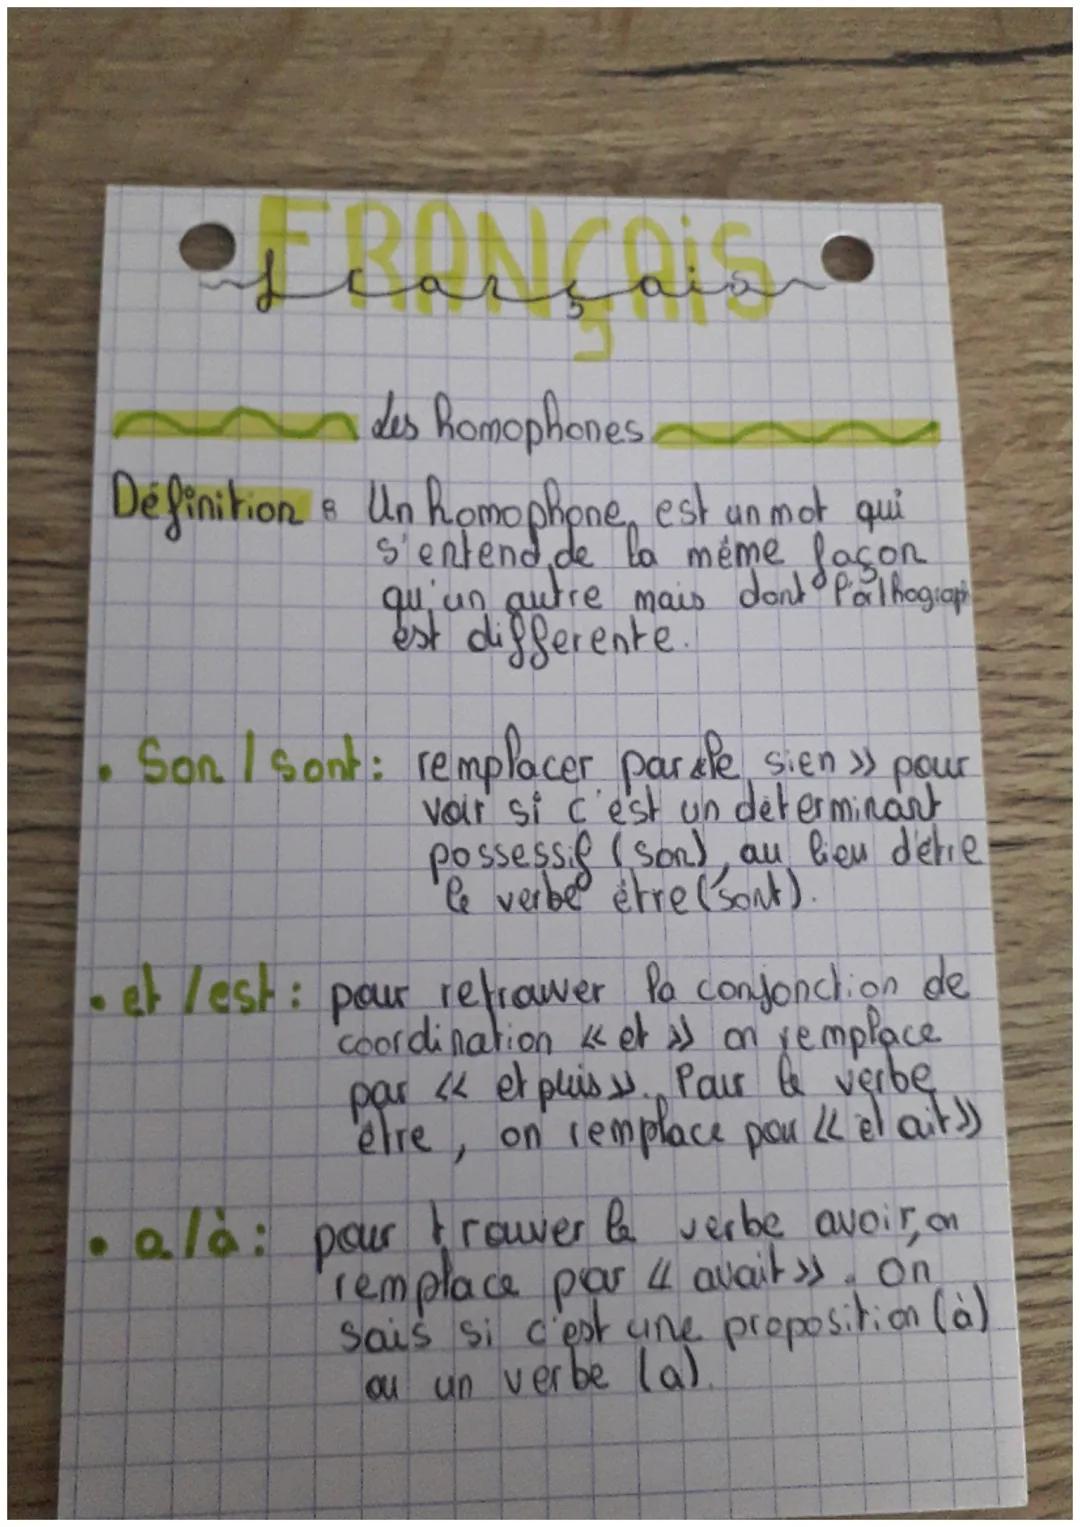 FRANÇAiS
français
Les homophones
Définition : Un homophone est un mot qui
s'entend de la même façon
qu'un autre mais dont l'orthograph
est differente.
• Son / sont : remplacer par « le sien » pour
voir si c'est un déterminant
possessif (son), au lieu d'être
le verbe être (sont).
• et / est : pour retrouver la conjonction de
coordination « et » on remplace
par « et puis ». Pour le verbe
être, on remplace pou « était »
• a / à : pour trouver le verbe avoir, on
remplace par « avait ». On
sais si c'est une proposition (à)
ou un verbe (a).